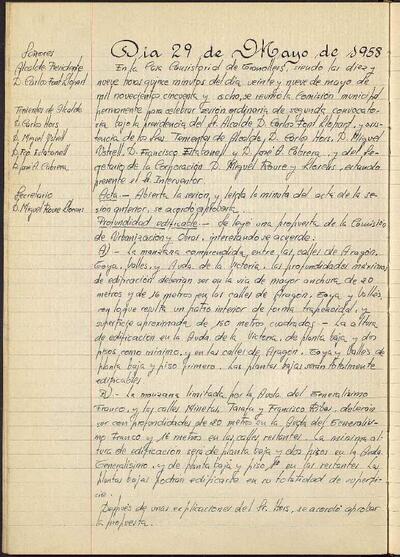 Señores
Alcalde Presidente
D. Carlos Font Llopart
Tenientes de Alcalde
D. Carlos Hors
D. Miguel
D. Fco. Estabanell
D. José A. Cabrera
Secretario
D. Miguel Roure
Dia 29 de Mayo de 1958
En la Casa Consistorial de Granollers, siendo las diez y
nueve horas quince minutos del dia veinte y nueve de mayo de
mil novecientos cincuenta y ocho, se reunió la Comisión municipal
permanente para celebrar sesión ordinaria de segunda convocato-
ria, bajo la presidencia del Sr. Alcalde D. Carlos Font Llopart, y asis-
tencia de los Sres. Tenientes de Alcalde, D. Carlos Hors, D. Miguel
D. Francisco Estabanell y D. José A. Cabrera, y del Se-
cretario de la Corporación D. Miguel Roure y estando
presente el Sr. Interventor.
Acta.- Abierta la sesión, y leida la minuta del acta de la se-
sión anterior, se acordó aprobarla.
Profundidad edificable.- Se leyó una propuesta de la Comisión
de Urbanización y Obras, interesando se acuerde:
A).- La manzana comprendida entre las calles de Aragón,
Goya, Vallés, y Avda. de la Victoria, las profundidades máximas
de edificación deberán ser en la via de mayor anchura de 20
metros y de 16 metros en las calles de Aragón, Goya y Vallés,
con lo que resulta un patio interior de forma trapezoidal, y
superficie aproximada de 150 metros cuadrados.- La altura
de edificación en la Avda. de la Victoria, de planta baja y dos
pisos como mínimo, y en las calles de Aragón, Goya y Vallés de
planta baja y piso primero. Las plantas bajas serán totalmente
edificables.
B).- La manzana limitada por la Avda. del Generalísimo
Franco, y las calles Minetas, Tarafa y Francisco Ribas, deberán
ser con profundidades de 20 metros en la Avda. del Generalísi-
mo Franco y 16 metros en las calles restantes. La mínima al-
tura de edificación será de planta baja y dos pisos en la Avda.
Generalísimo, y de planta baja y piso en las restantes. Las
plantas bajas podrán edificarse en su totalidad de superfi-
cie.
Después de unas explicaciones del Sr. Hors, se acordó aprobar
la propuesta.